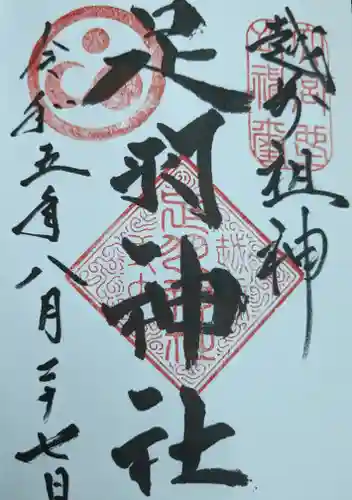 越の祖神
足羽神社
令和五年八月二十七日